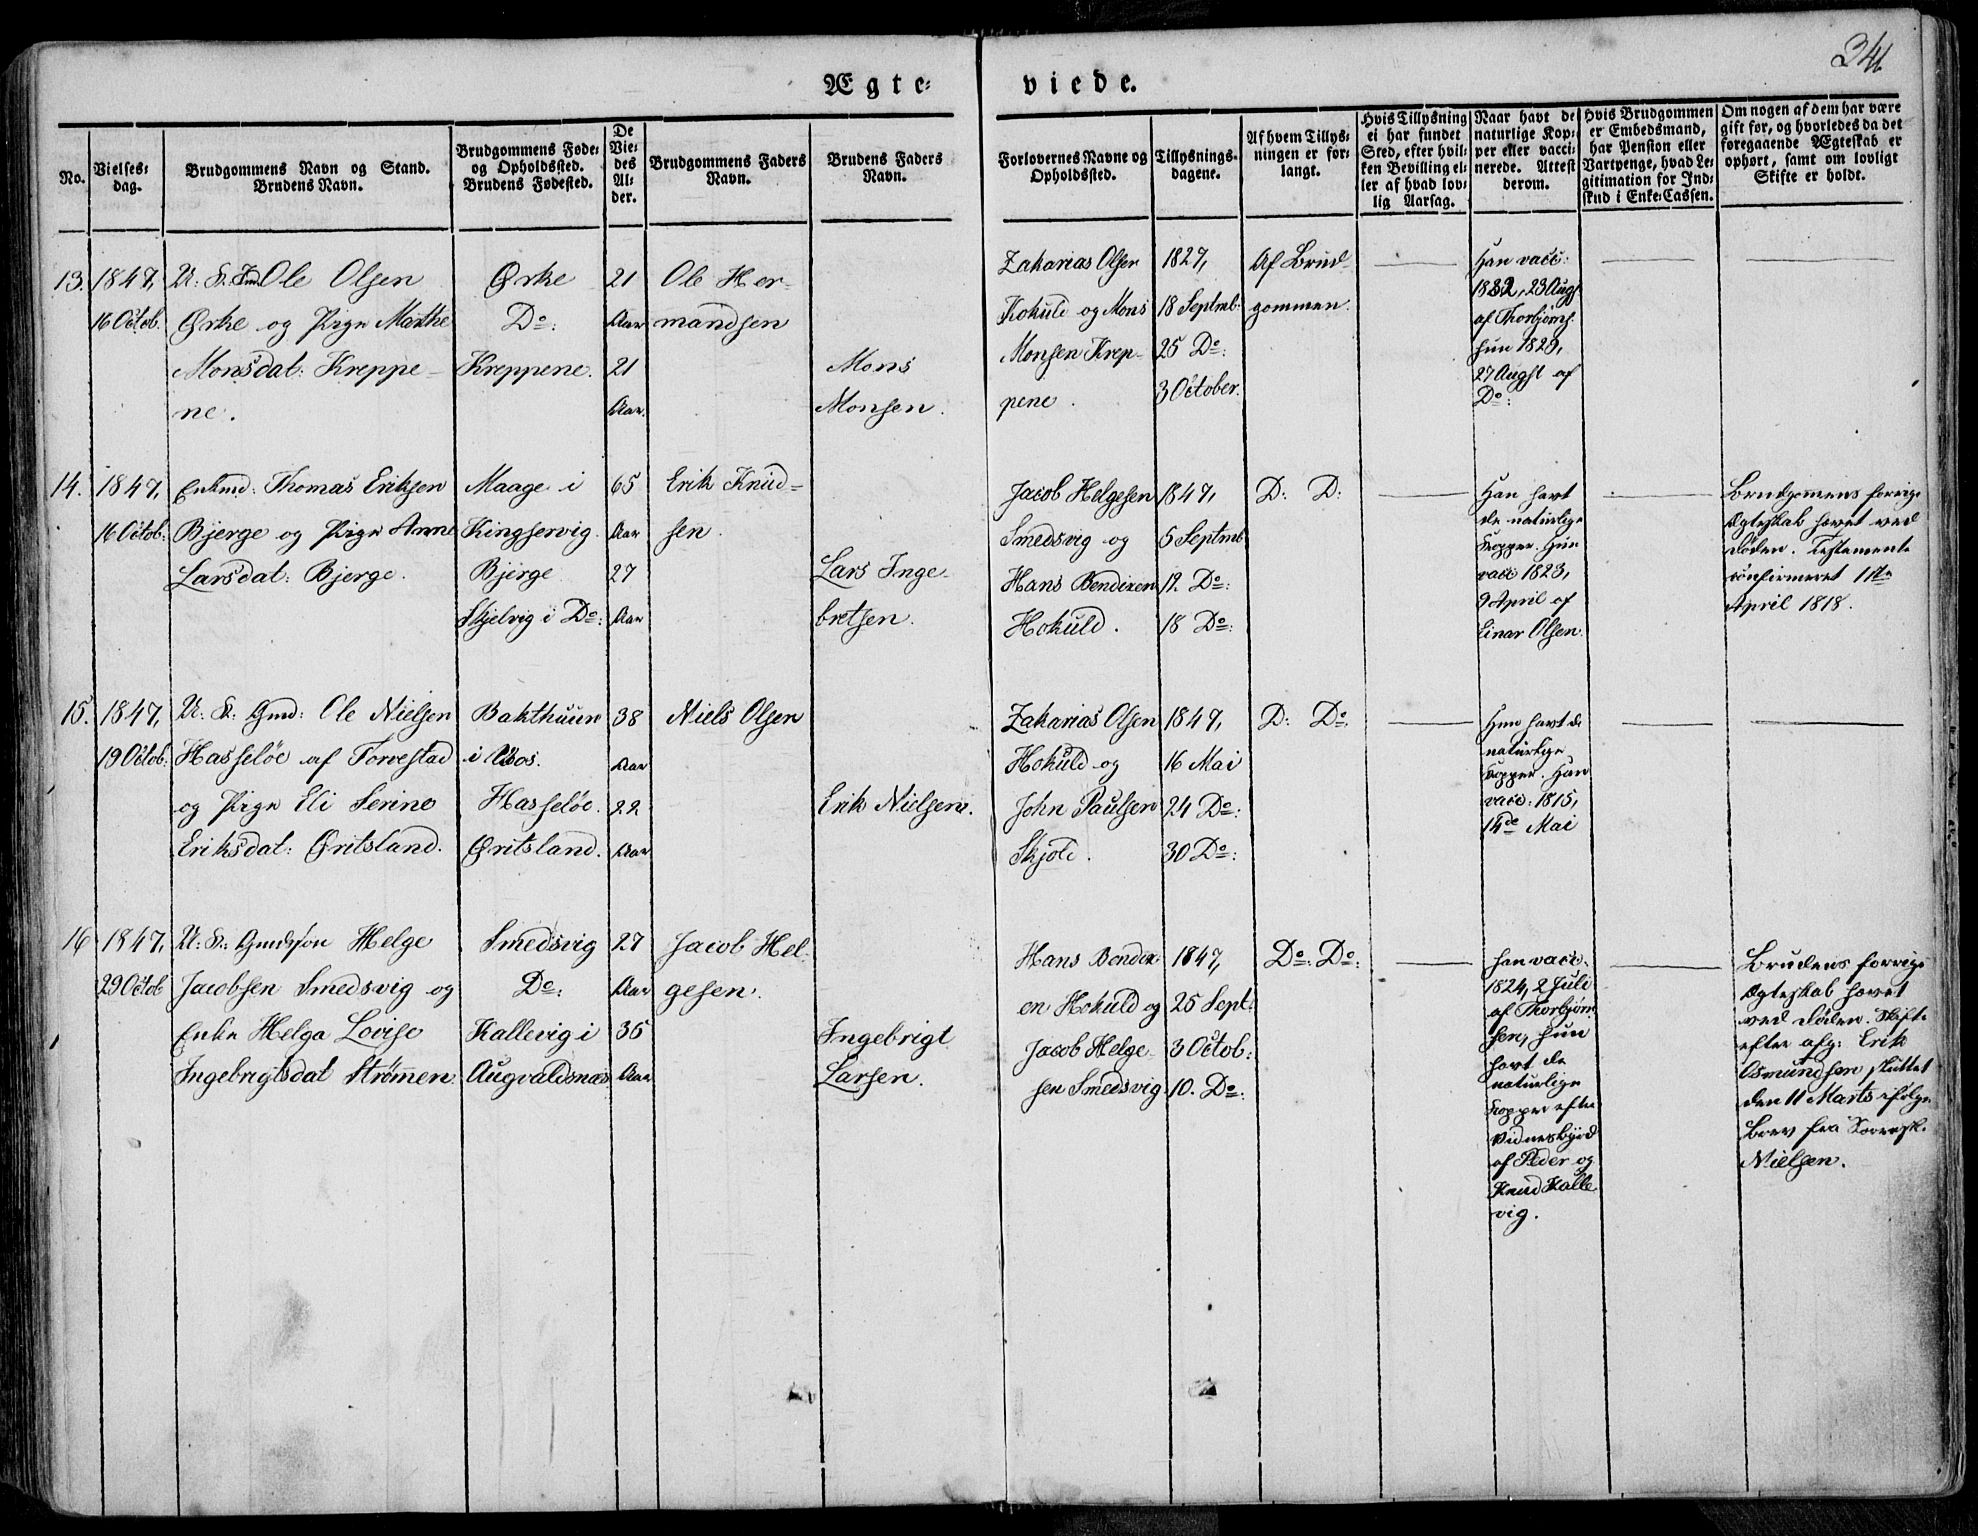 341
Ægte- viede.
No.
Vielses-
dag.
Brudgommens Navn og Stand.
Brudens Navn.
Brudgommens Føde-
og Opholdssted.
Brudens Fødested.
De
Vie-
des
Al-
der.
Brudgommens Faders
Navn.
Brudens Faders
Navn.
Forlovernes Navne og
Opholdssted.
Tillysnings-
dagene.
Af hvem Tillys-
ningen er for-
langt.
Hvis Tillysning
ei har fundet
Sted, efter hvil-
ken Bevilling el-
ler af hvad lov-
lig Aarsag.
Naar havt de
naturlige Kop-
per eller vacci-
nerede. Attest
derom.
Hvis Brudgommen
er Embedsmand,
har Pension eller
Vartpenge, hvad Le-
gitimation for Ind-
skud i Enke-Cassen.
Om nogen af dem har være
gift før, og hvorledes da det
foregaaende Ægteskab er
ophørt, samt om lovligt
Skifte er holdt.
13.
1847,
16 Octob.
U: K: Ole Olsen
Ørke og Pige Marthe
Monsdat: Kreppe-
ne.
Ørke
Do:
Kreppene.
21
Aar
21
Aar.
Ole Her-
mandsen
Mons
Monsen.
Zakarias Olsen
Hokuld og Mons
Monsen Krep-
pene.
1827,
18 Septmb.
25 Do:
3 October.
Af Brud-
gommen.
Han vacc:
1832, 23 Augs
af Thorbjørns.
hun 1829,
27 Augst af
Do:
14.
1847,
16 Octob:
Enkmd: Thomas Eriksen
Bjerge og Pige Anne
Larsdat: Bjerge.
Maage i
Kingservig.
Bjerge
Skjelvig i Do:
65
Aar
27
Aar
Erik Knud-
sen.
Lars Inge-
bretsen.
Jacob Helgesen
Smedsvig og
Hans Bendixen
Hokuld.
1847,
5 Septmb
12 Do:
18 Do:
D: D:
Han havt
de naturlige
Kopper. Hun
vacc 1823,
9 April af
Einar Olsen.
Brudgomens forrige
Ægteskab hævet ved
Døden. Testamente
confirmeret 1ste
April 1818.
15.
1847,
19 Octob:
U: K: Gmd: Ole Nielsen
Hasseløe af Torvestad
og Pige Eli Serine
Eriksdat: Øritsland.
Bakthuun
i Vos.
Hasseløe.
Øritsland.
38
Aar
22
Aar
Niels Olsen
Erik Nielsen.
Zakarias Olsen
Hokuld og
John Paulsen
Skjold.
1847,
16 Mai
24 Do:
30 Do:
D: Do:
Hun havt de
naturlige
Kopper. Han
vacc: 1815,
14de Mai
16
1847,
29 Octob
U: K: Gmdsøn Helge
Jacobsen Smedsvig og
Enke Helga Lovise
Ingebrigtsdat Strømen.
Smedsvig
Do:
Kallevig i
Augvaldsnæs
27
Aar
36
Aar
Jacob Hel-
gesen.
Ingebrigt
Larsen.
Hans Bendix-
en Hokuld og
Jacob Helge-
sen Smedsvig
1847,
25 Sept:
3 Octob:
10. Do:
Do: Do:
han vacc.
1824, 2 Juli
af Thorbjørn
sen, hun
havt de
naturlige
Kopper efter
Vidnesbyrd
af Peder og
Knud Kalle
vig.
Brudens forrige
Ægteskab hævet
ved Døden. Skifte
efter afg: Erik
Osmundsen sluttet
den 11 Marts ifølge
Brev fra Sorenskr.
Nielsen.